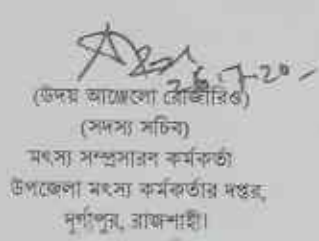 26-7-20
(উদয় আঞ্জেলো রোজারিও)
(সদস্য সচিব)
মৎস্য সম্প্রসারণ কর্মকর্তা
উপজেলা মৎস্য কর্মকর্তার দপ্তর,
দূর্গাপুর, রাজশাহী।